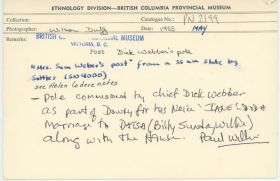 ETHNOLOGY DIVISION—BRITISH COLUMBIA PROVINCIAL MUSEUM
Catalogue No.: PN 2199
Photographer: Wilson Duff Date: 1955 MAY
BRITISH C PROVINCIAL MUSEUM
VICTORIA, B.C.
Post Dick Webber's pole
"Mrs. Sam Weber's post" from a 35 mm slide by
(SW4000)
see Helen Codere notes
- Pole commissioned by chief Dick Webber
as part of Dowry for his Neice
Marriage to (Billy Sunday Willie)
along with the House. Paul Willie